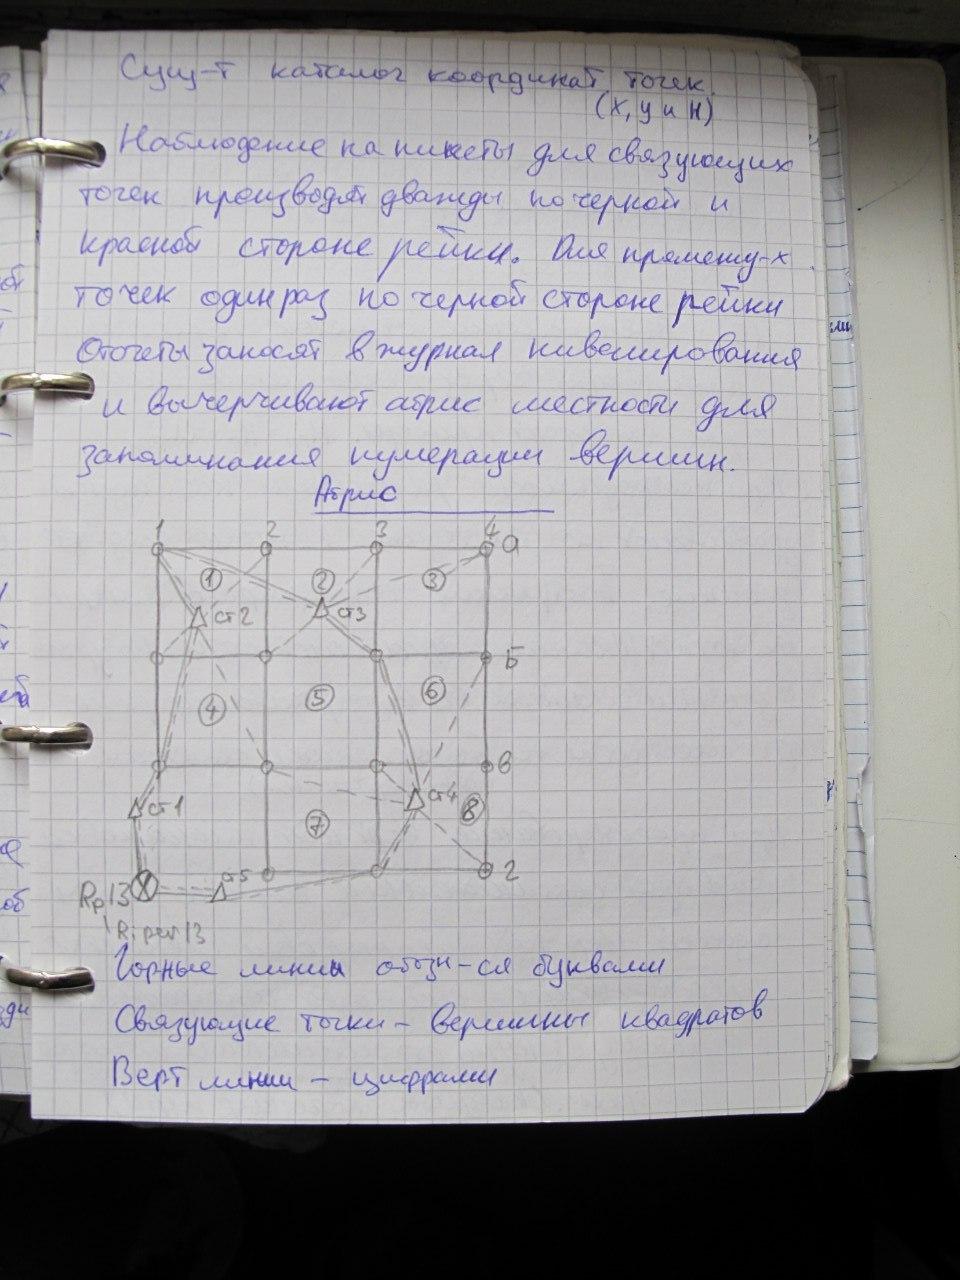 Сущ-т каталог координат точек.
(X, У и Н)
Наблюдение на пикеты для связующих
точек производят дважды по черной и
красной стороне рейки. Для промежу-х
точек один раз по черной стороне рейки
Отсчеты заносят в журнал нивелирования
и вычерчивают атрис местности для
запоминания нумерации вершин.
Атрис
1 2 3 4 а
1 2 3
ст2 ст3
Б
4 5 6
в
ст1 ст4
7 8
ст5 г
Rp13
Горные линии обозн-ся буквами
Связующие точки - вершины квадратов
Верт линии - цифрами